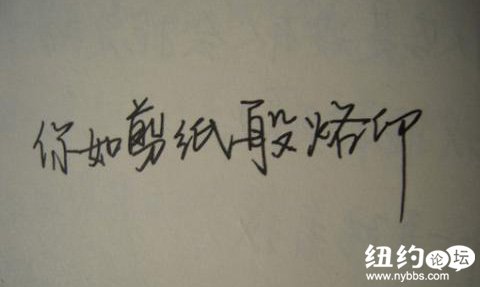 你如剪纸般烙印
纽约论坛
www.nybbs.com